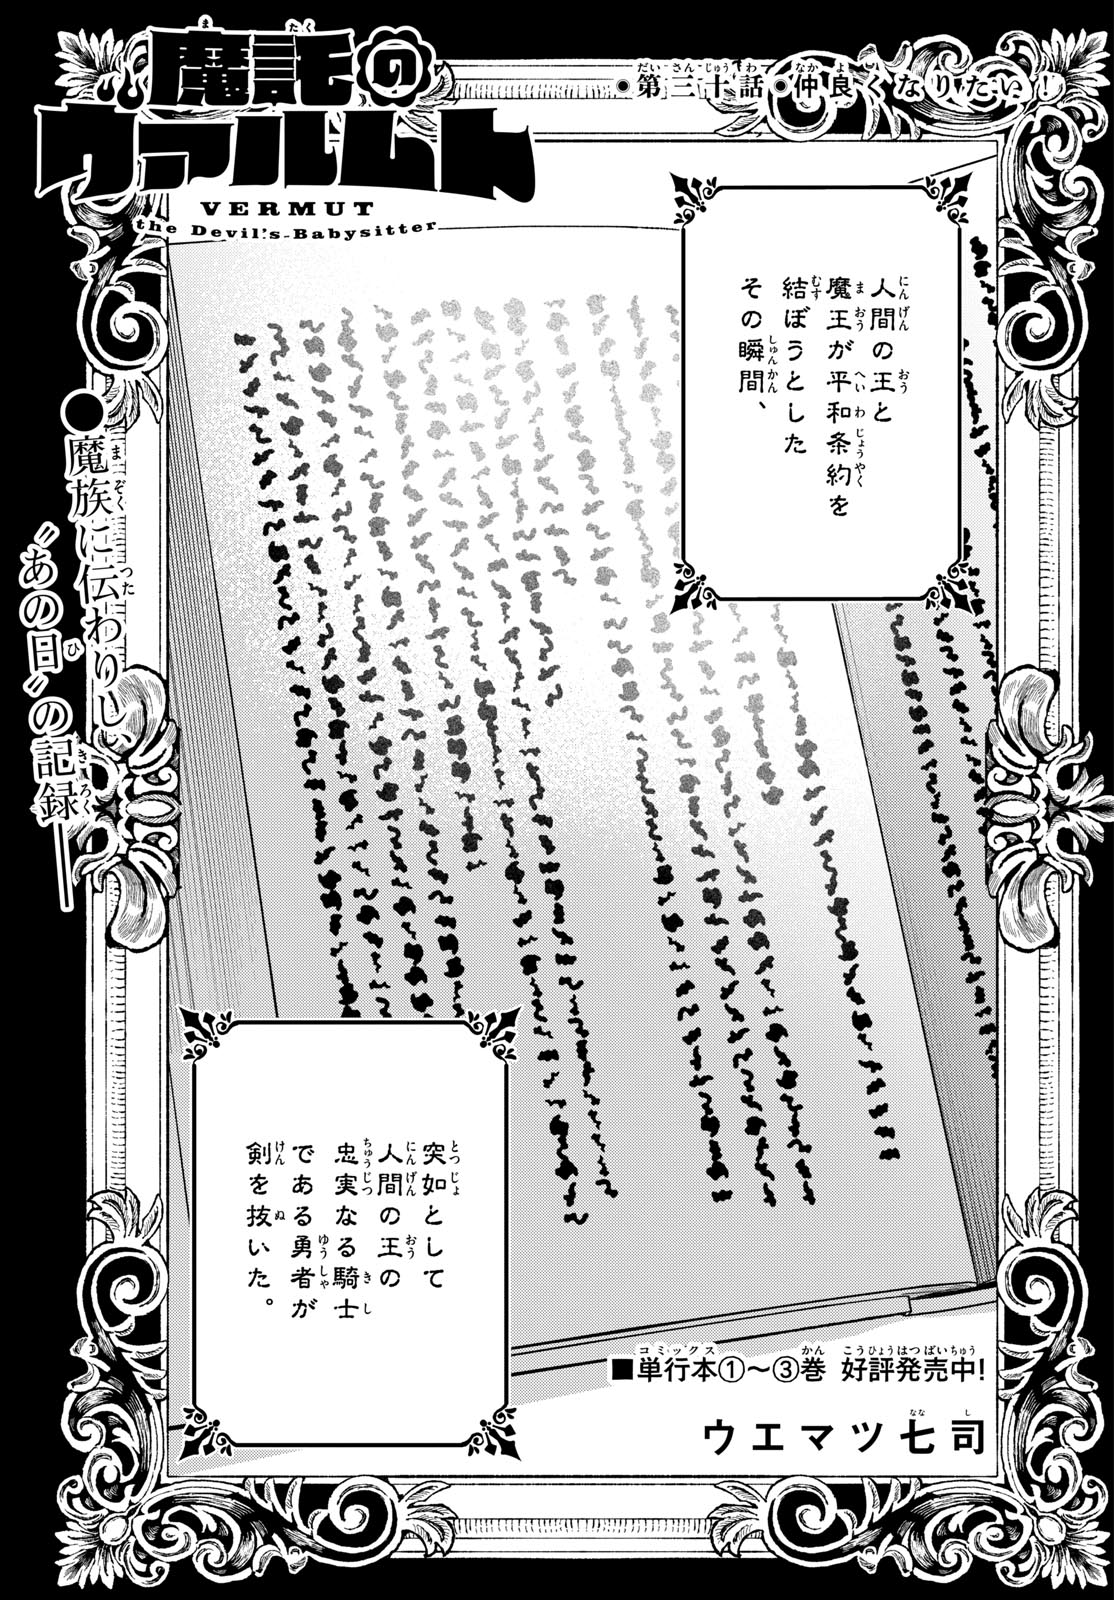 魔託の
ヴァルムト
VERMUT
the Devil's Babysitter
・第三十話・仲良くなりたい!
人間の王と
魔王が平和条約を
結ぼうとした
その瞬間、
●魔族に伝わりし、
〝あの日〟の記録――
突如として
人間の王の
忠実なる騎士
である勇者が
剣を抜いた。
■単行本①~③巻 好評発売中!
ウエマツ七司